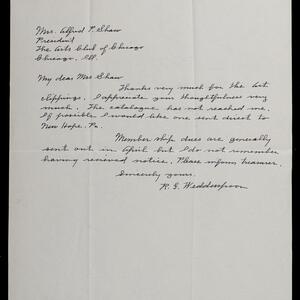 Mrs. Alfred P. Shaw
President
The Arts Club of Chicago
Chicago, Ill.
My dear Mrs Shaw
Thanks very much for the Art
clippings. I appreciate your thoughtfulness very
much. The catalogue has not reached me.
If possible I would like one sent direct to
New Hope, Pa.
Membership dues are generally
sent out in April but I do not remember
having received notice. Please inform treasurer.
Sincerely yours.
R. G. Wedderspoon